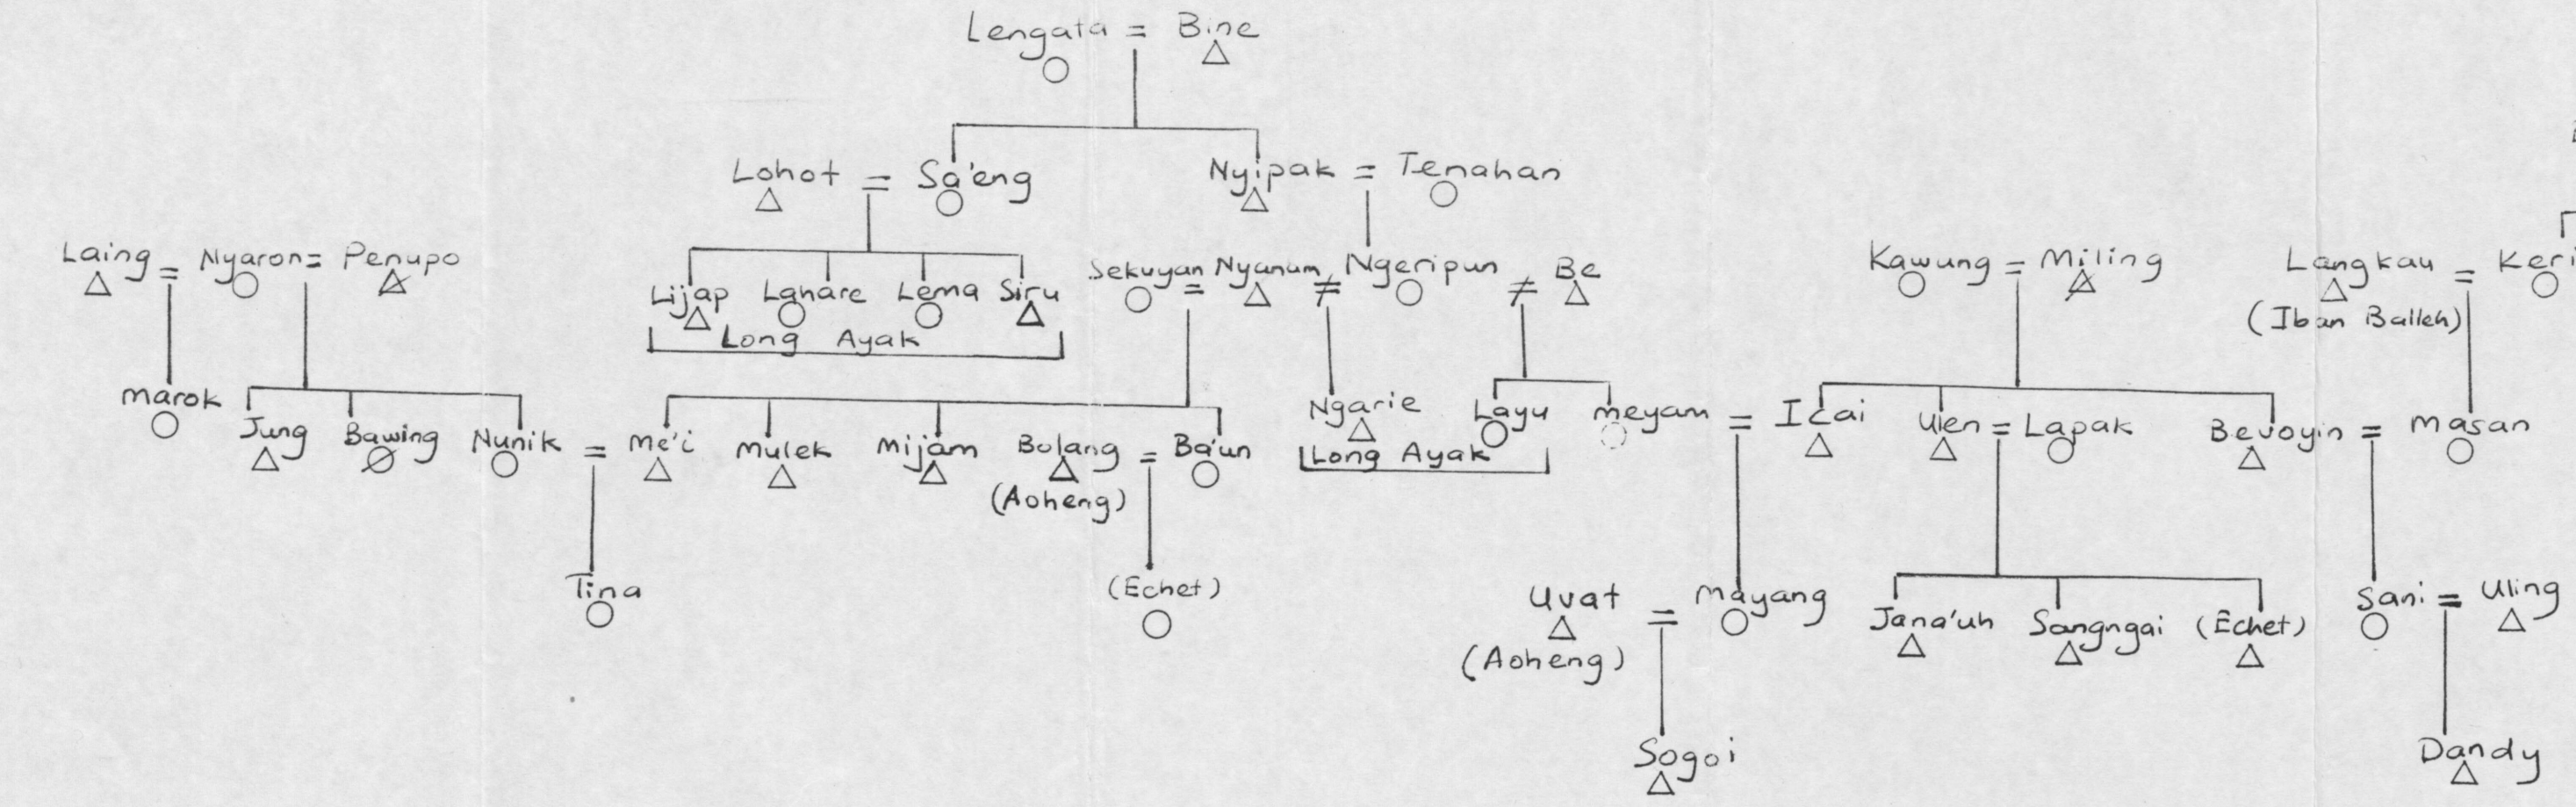 Lengata = Bine
Lohot = Sa'eng
Nyipak = Tenahan
Laing = Nyaron = Penupo
Lijap Lahare Lema Siru
Long Ayak
Sekuyan = Nyanum ≠ Ngeripun ≠ Be
Kawung = Miling
Langkau =
(Iban Balleh)
marok
Jung Bawing Nunik = Me'i Mulek Mijam Bolang = Ba'un
(Aoheng)
Ngarie Layu meyam = Icai
Long Ayak
Ulen = Lapak
Bevoyin = masan
Tina
(Echet)
Uvat = Mayang
(Aoheng)
Jana'uh Sangngai (Echet)
Sani = Uling
Sogoi
Dandy